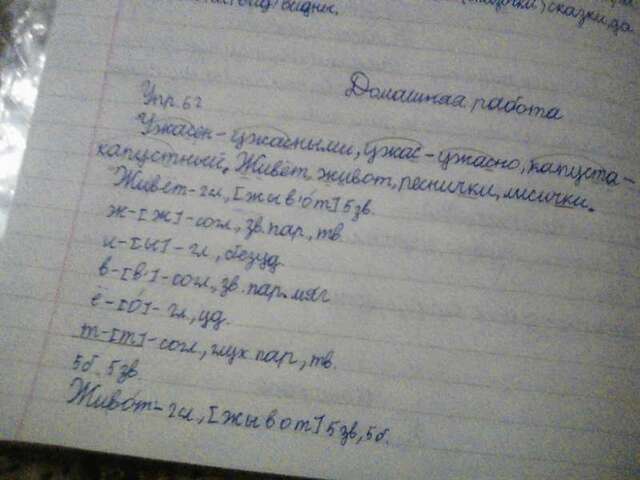 сказки, да
видны.
Домашная работа
Упр. 62
Ужасен - ужасными, ужас - ужасно, капуста -
капустный. Живёт, живот, реснички, лисички.
Живёт - гл, [жыв'от] 5 зв.
ж - [ж] - согл, зв. пар, тв.
и - [ы] - гл, безуд
в - [в'] - согл, зв. пар. мяг
ё - [о́] - гл, уд.
т - [т] - согл, глух пар, тв.
5б. 5 зв.
Живот - гл, [жывот] 5 зв, 5б.